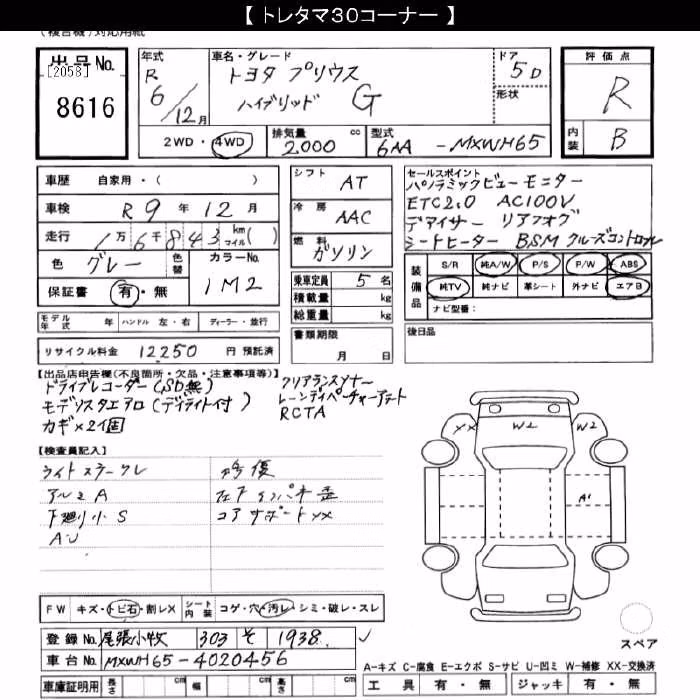 【 トレタマ30コーナー 】
(複合機)対応用紙
出品No.
[2058]
8616
年式
R
6/12月
車名・グレード
トヨタ プリウス
ハイブリッド G
ドア
5D
形状
2WD・4WD
排気量
2,000 cc
型式
6AA -MXWH65
評価点
R
内装
B
車歴 自家用・( )
車検 R 9 年 12 月
走行 1万 6千 843 km マイル( )
色 グレー 色替 カラーNo. 1M2
保証書 有・無
シフト AT
冷房 AAC
燃料 ガソリン
乗車定員 5 名
積載量 kg
総重量 kg
書類期限
月 日
セールスポイント
パノラミックビューモニター
ETC2.0 AC100V
デアイサー リアフォグ
シートヒーター BSM クルーズコントロール
装備品
S/R 純A/W P/S P/W ABS
純TV 純ナビ 革シート 外ナビ エアB
ナビ型番:
後日品
モデル年式 年 ハンドル 左・右 ディーラー・並行
リサイクル料金 12250 円 預託済
【出品店申告欄(不良箇所・欠品・注意事項等)】
ドライブレコーダー(SD無) クリアランスソナー
モデリスタエアロ(デイライト付) レーンディパーチャーアラート
カギ×2個 RCTA
【検査員記入】
アルミA
下廻り小S
修復
コアサポートXX
XX W2 W2
A1
FW キズ・トビ石・割レX シート内装 コゲ・穴・汚レ・シミ・破レ・スレ
登録No. 尾張小牧 303 そ 1938
車台No. MXWH65-4020456
車庫証明用 長さ cm 幅 cm 高さ cm
スペア
A-キズ C-腐食 E-エクボ S-サビ U-凹ミ W-補修 XX-交換済
工具 有・無 ジャッキ 有・無